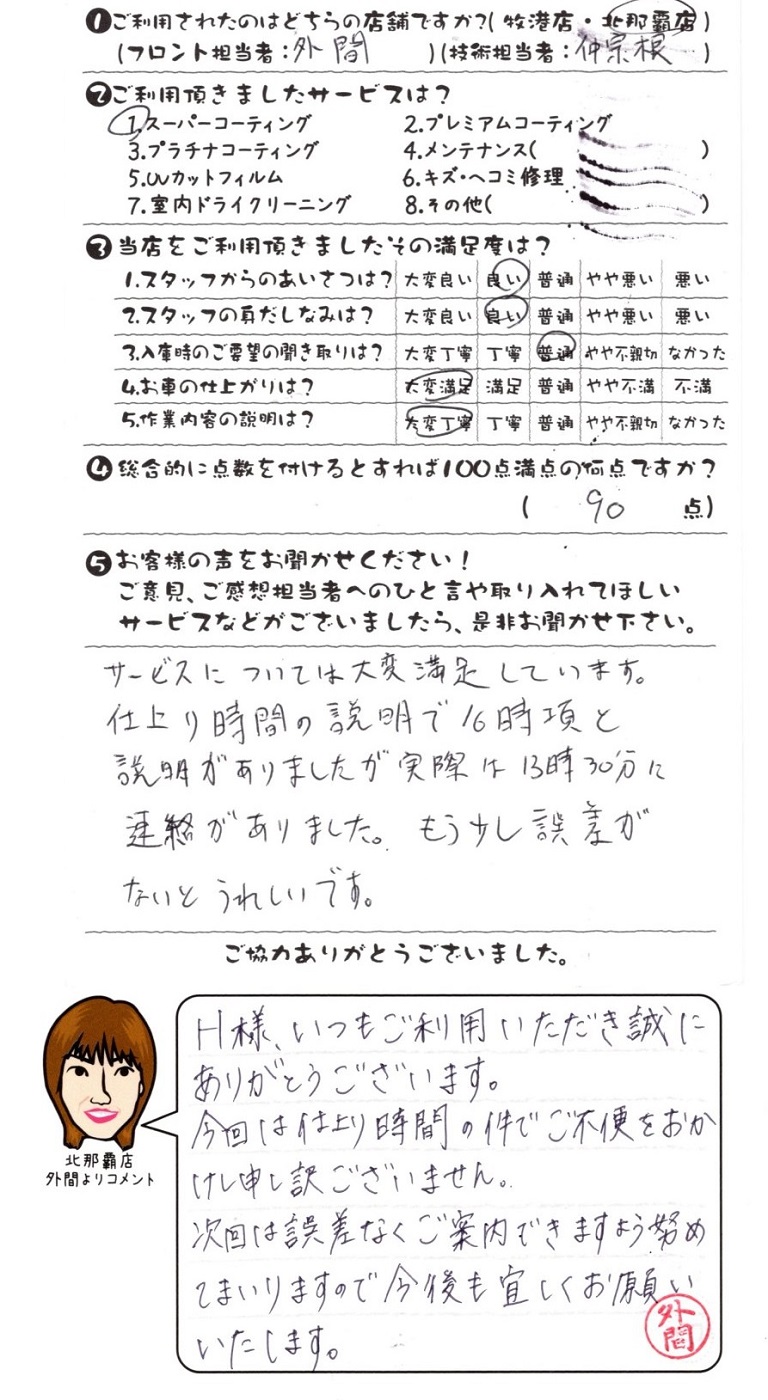 ❶ご利用されたのはどちらの店舗ですか?(牧港店・北那覇店)
(フロント担当者:外間 )(技術担当者:仲宗根 )
❷ご利用頂きましたサービスは?
1.スーパーコーティング 2.プレミアムコーティング
3.プラチナコーティング 4.メンテナンス( )
5.UVカットフィルム 6.キズ・ヘコミ修理
7.室内ドライクリーニング 8.その他( )
❸当店をご利用頂きましたその満足度は?
1.スタッフからのあいさつは? 大変良い 良い 普通 やや悪い 悪い
2.スタッフの身だしなみは? 大変良い 良い 普通 やや悪い 悪い
3.入庫時のご要望の聞き取りは? 大変丁寧 丁寧 普通 やや不親切 なかった
4.お車の仕上がりは? 大変満足 満足 普通 やや不満 不満
5.作業内容の説明は? 大変丁寧 丁寧 普通 やや不親切 なかった
❹総合的に点数を付けるとすれば100点満点の何点ですか?
( 90 点)
❺お客様の声をお聞かせください!
ご意見、ご感想担当者へのひと言や取り入れてほしい
サービスなどがございましたら、是非お聞かせ下さい。
サービスについては大変満足しています。
仕上り時間の説明で16時項と
説明がありましたが実際は13時30分に
連絡がありました。もう少し誤差が
ないとうれしいです。
ご協力ありがとうございました。
H様、いつもご利用いただき誠に
ありがとうございます。
今回は仕上り時間の件でご不便をおか
けし申し訳ございません。
次回は誤差なくご案内できますよう努め
てまいりますので今後も宜しくお願い
いたします。
外間
北那覇店
外間よりコメント